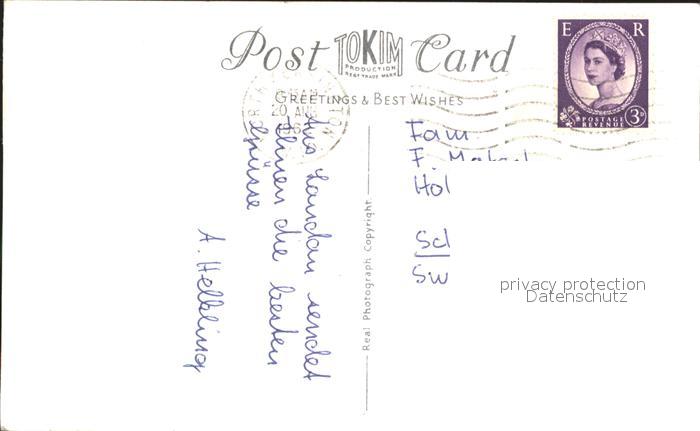 Post TOKIM Card
PRODUCTION
REG? TRADE MARK
GREETINGS & BEST WISHES
E R
POSTAGE
REVENUE 3D
20 AUG
Aus London sendet
Ihnen die besten
Grüsse
A. Helbling
Real Photograph Copyright.
Fam.
F.
Hol
Scl
Sw
privacy protection
Datenschutz